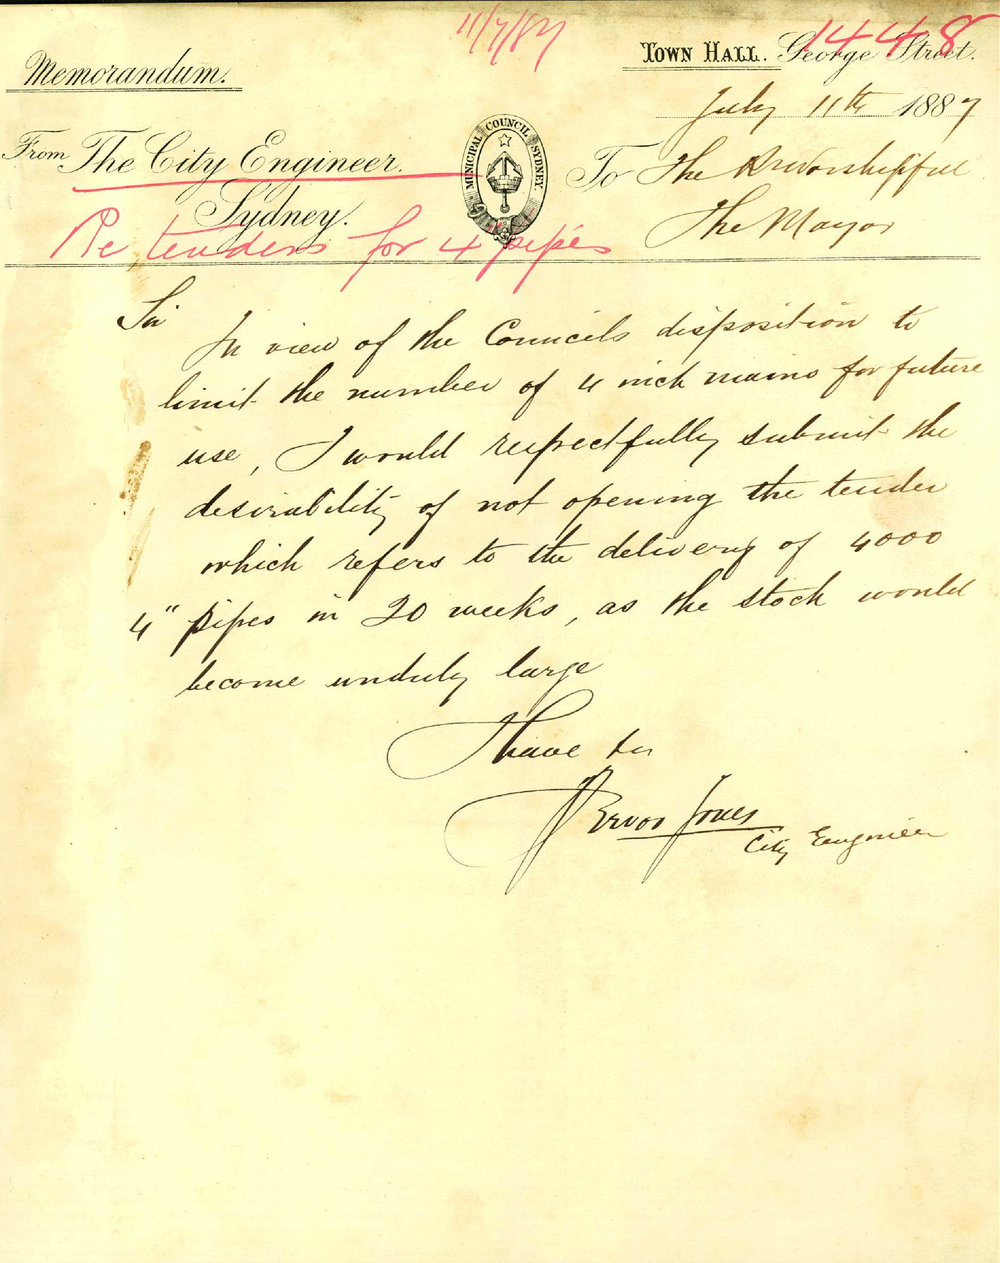 11/7/87
1448
Memorandum.
Town Hall. George Street.
July 11th 1887
From The City Engineer.
Sydney.
MUNICIPAL COUNCIL SYDNEY.
To The Rt Worshipful
The Mayor
Re tenders for 4 pipes
Sir
In view of the Councils disposition to
limit the number of 4 inch mains for future
use, I would respectfully submit the
desirability of not opening the tender
which refers to the delivery of 4000
4" pipes in 20 weeks, as the stock would
become unduly large
I have
Trevor Jones
City Engineer